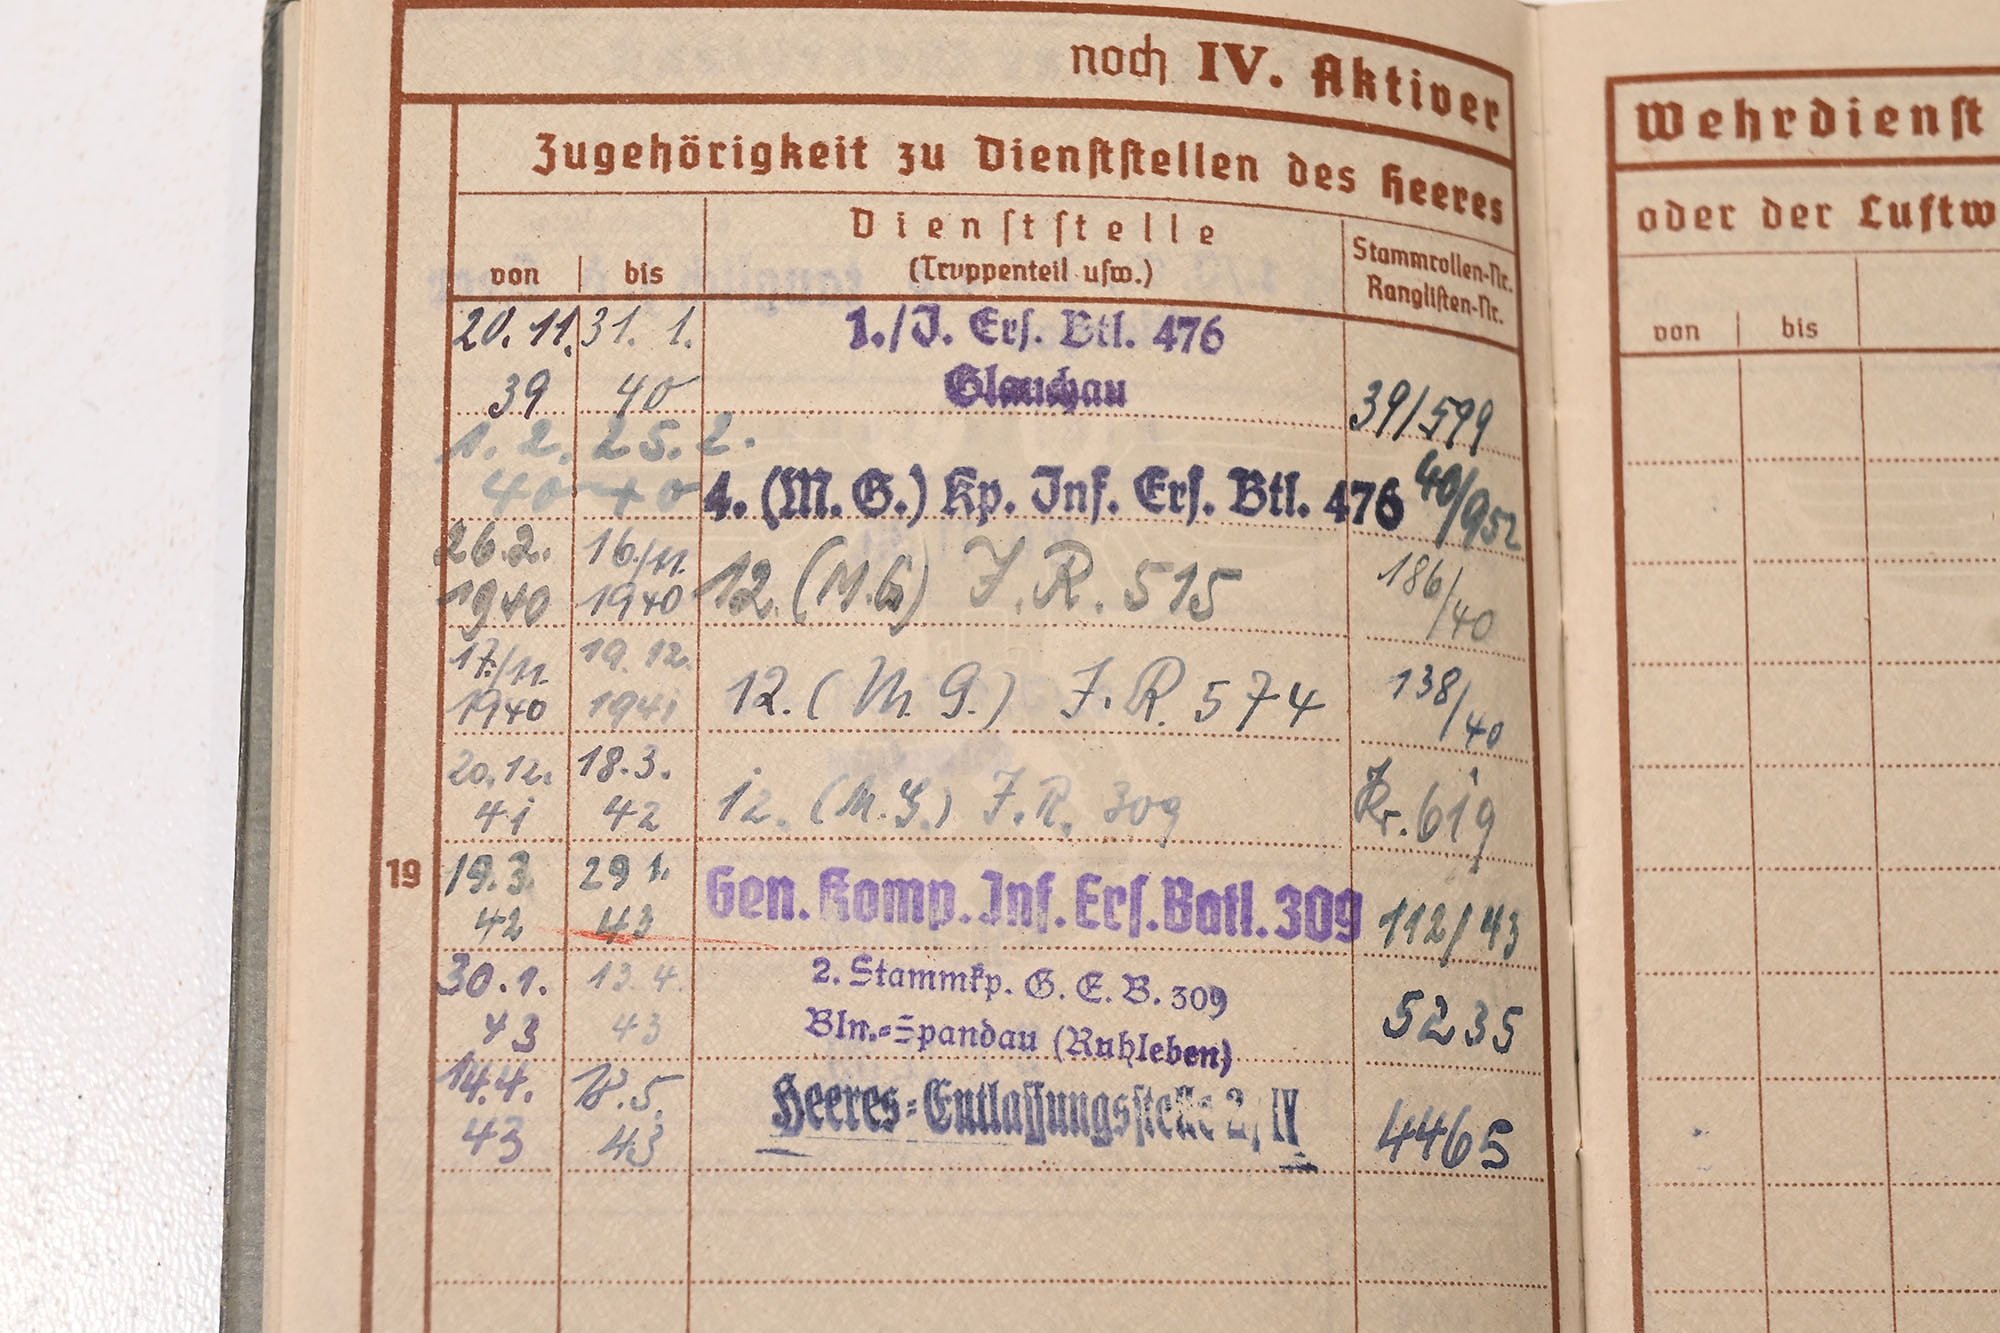 noch IV. Aktiver
Zugehörigkeit zu Dienststellen des Heeres
von bis
Dienststelle
(Truppenteil usw.)
Stammrollen-Nr.
Ranglisten-Nr.
20. 11. 31. 1. 1./J. Ers. Btl. 476
39 40 Glauchau 39/599
1. 2. 25. 2.
40 40 4. (M. G.) Kp. Inf. Ers. Btl. 476 40/952
26.2. 16/11.
1940 1940 12. (M.G) J.R. 515 186/40
17./11. 19.12.
1940 1941 12. (M. G.) J.R. 574 138/40
20.12. 18.3.
41 42 12. (M.G.) J.R. 309 Kr. 619
19
19.3. 29 1.
42 43 Gen. Komp. Inf. Ers. Batl. 309 112/43
30.1. 13.4. 2. Stammkp. G. E. B. 309
43 43 Bln.-Spandau (Ruhleben) 5235
14.4. 18.5. Heeres-Entlassungsstelle 2/IV
43 43 4465
Wehrdienst
oder der Luftw
von bis